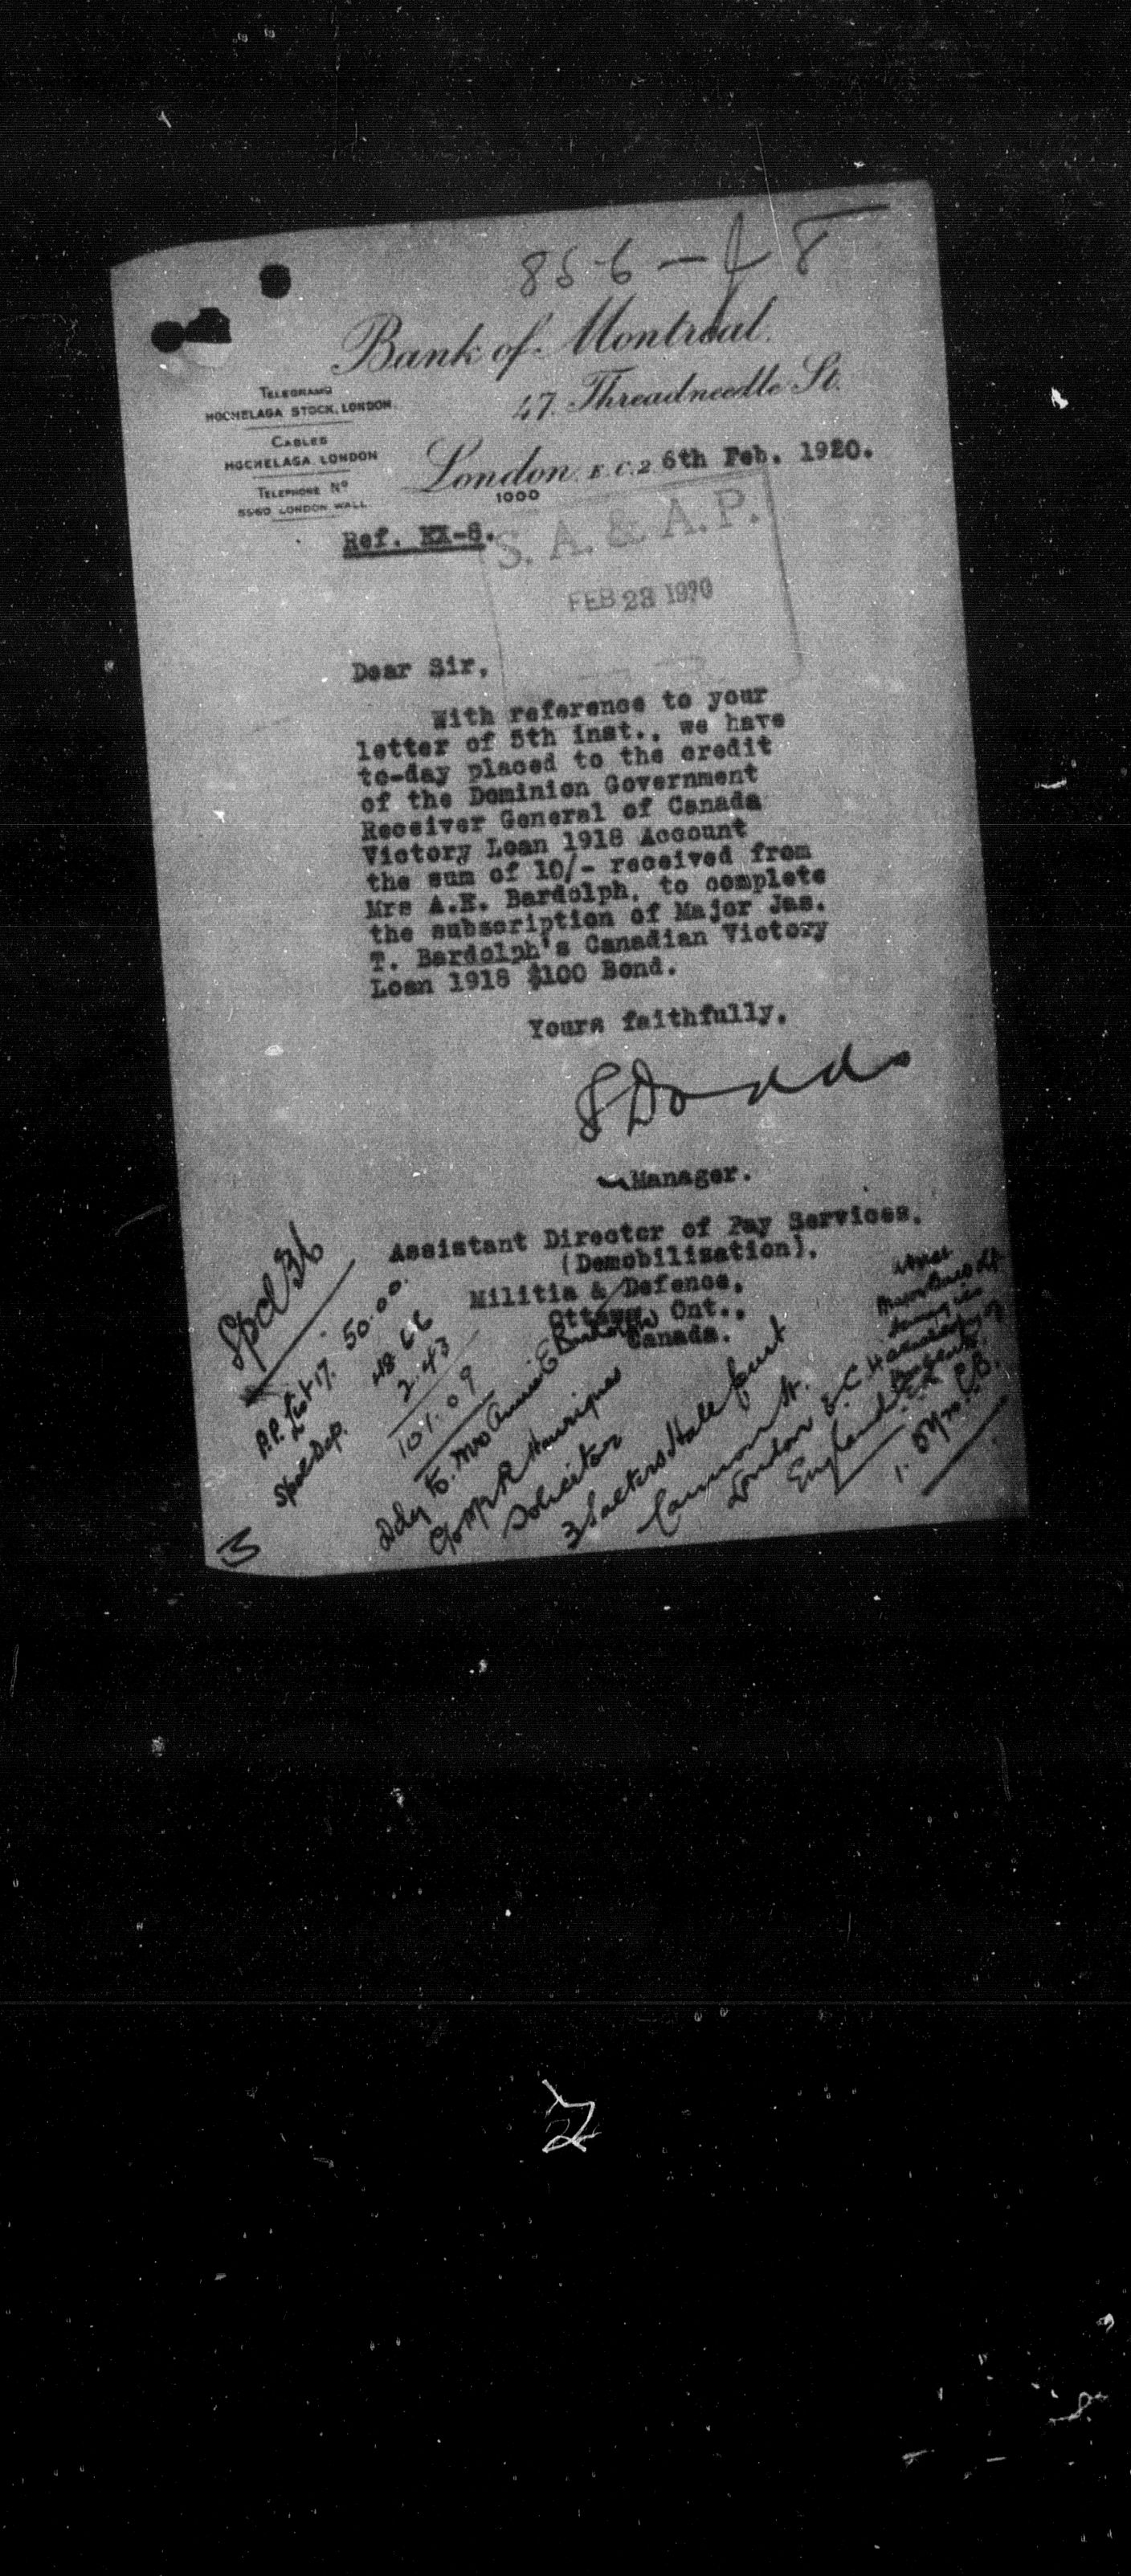 856-48
Bank of Montreal.
47. Threadneedle St.
TELEGRAMS
HOCHELAGA STOCK, LONDON.
CABLES
HOCHELAGA LONDON
TELEPHONE No
5560 LONDON WALL
London, E.C.2 6th Feb. 1920.
1000
Ref. EX-8.
S. A. & A.P.
FEB 23 1920
Dear Sir,
With reference to your
letter of 5th inst., we have
to-day placed to the credit
of the Dominion Government
Receiver General of Canada
Victory Loan 1918 Account
the sum of 10/- received from
Mrs A.E. Bardolph, to complete
the subscription of Major Jas.
T. Bardolph's Canadian Victory
Loan 1918 $100 Bond.
Yours faithfully,
Dodds
Manager.
Assistant Director of Pay Services,
(Demobilisation),
Militia & Defence,
Ottawa, Ont.,
Canada.
Spcl 36
P.P. List 17. 50.00.
48.66
Spcl Dep. 2.43
101.09
Dely To. Mrs Annie E Bardolph
c/o Mr R Henriques
Solicitor
3 Salters Hall Court
Cannon St.
London E.C.4
England
3